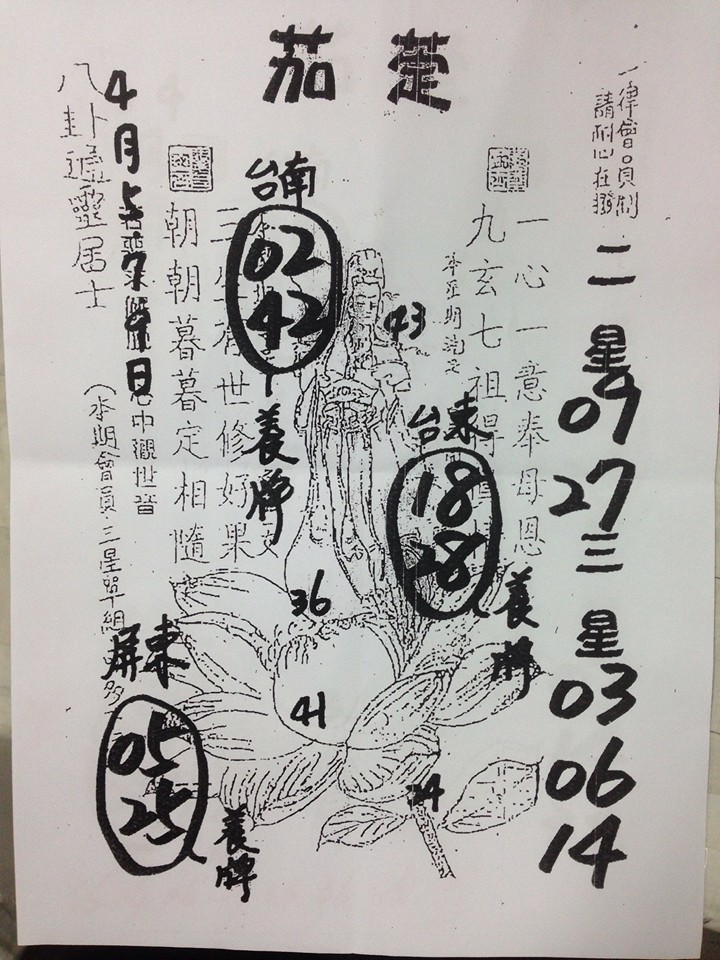 茄萣
一律會員制
請耐心在撥
二星
09
27
三星
03
06
14
一心一意奉母恩
九玄七祖得
43
台東
18
28
養牌
台南
02
42
養牌
三生有世修好果
朝朝暮暮定相隨
36
41
24
4月
日
中觀世音
(本期會員三星單組
多
八卦通靈居士
屏東
05
25
養牌